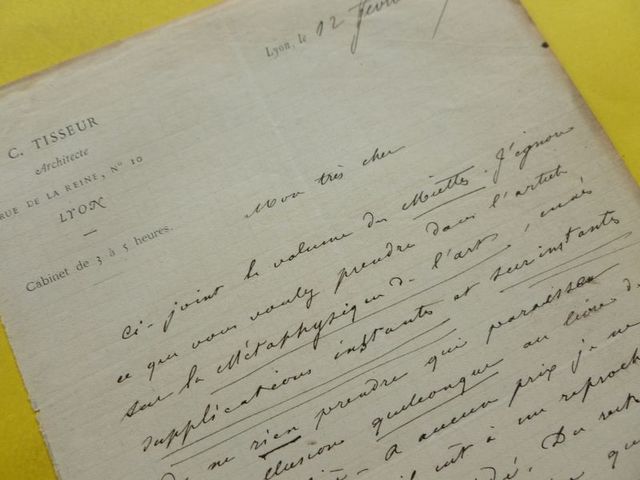 Lyon, le 12 févri
C. TISSEUR
Architecte
RUE DE LA REINE, N° 10
LYON
Cabinet de 3 à 5 heures.
Mon très cher
Ci-joint le volume des Miettes. J'ignore
ce que vous voulez prendre dans l'article
sur la Métaphysique de l'art, mais
supplications instantes et surinstantes
de ne rien prendre qui paraisse
allusion quelconque au livre de
A aucun prix je ne
il eût à un reproch
Du reste
que